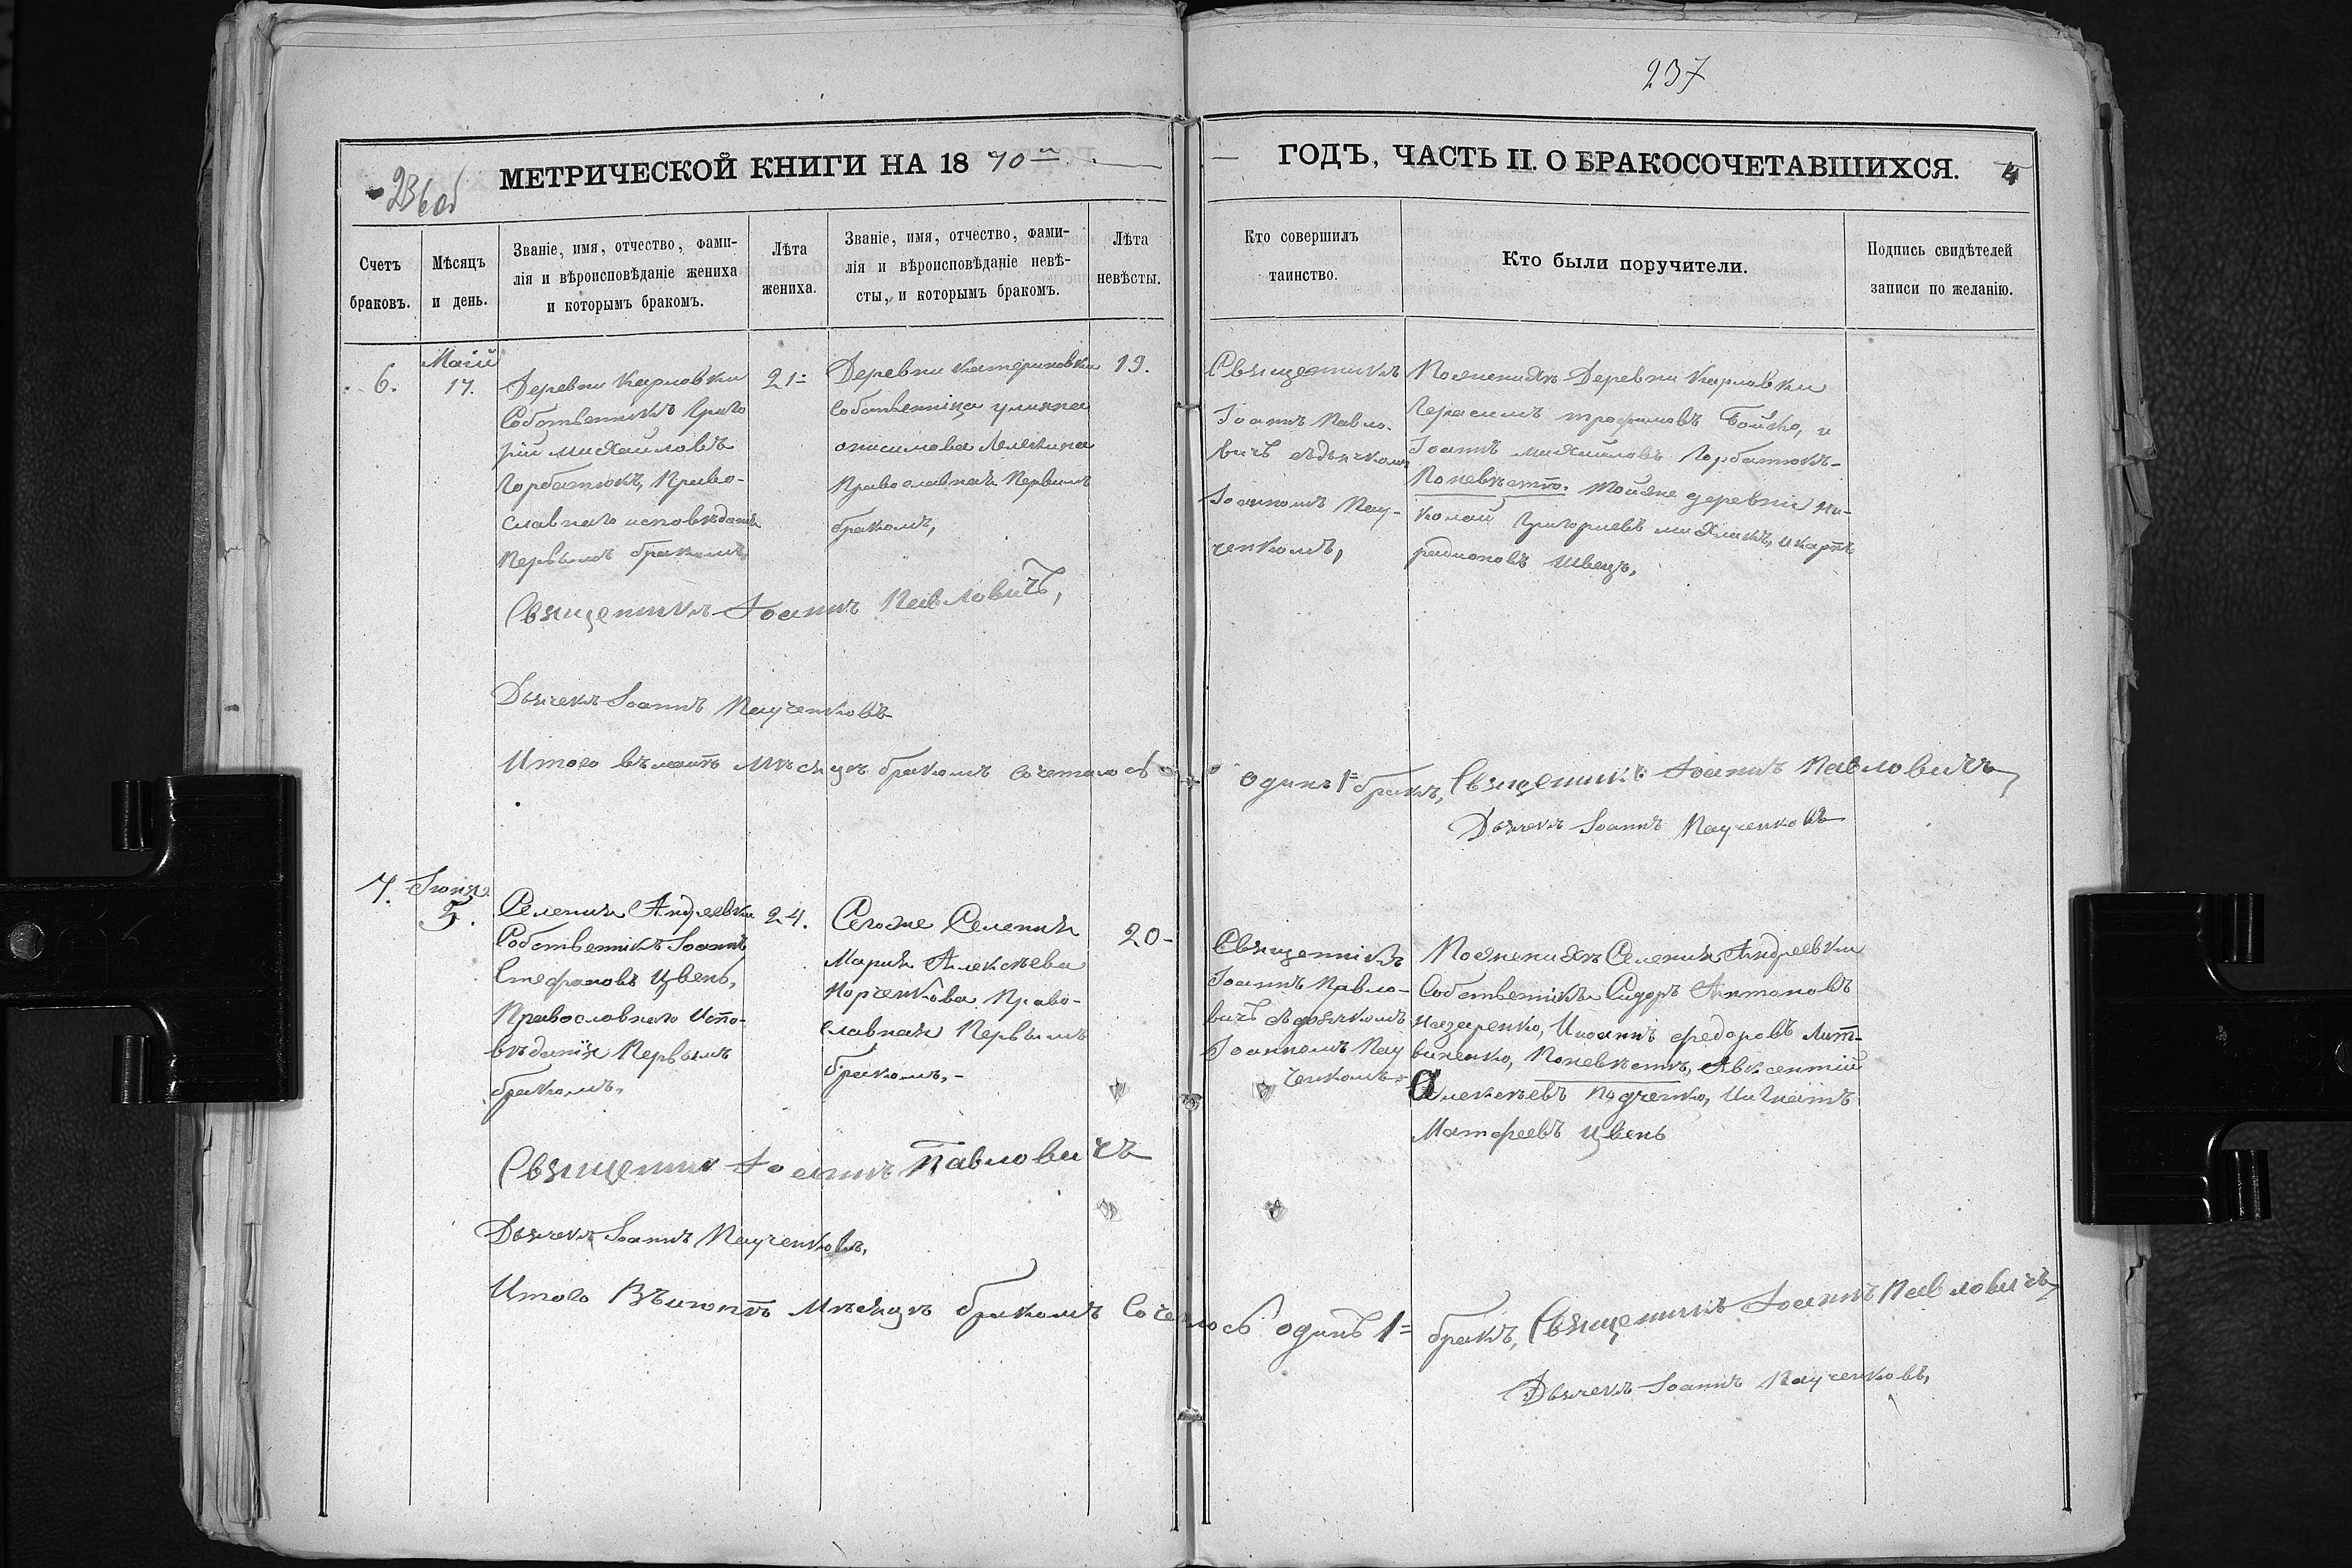 237
МЕТРИЧЕСКОЙ КНИГИ НА 1870й
ГОДЪ, ЧАСТЬ II. О БРАКОСОЧЕТАВШИХСЯ. 4
236об
Счетъ браковъ.
Мѣсяцъ и день.
Званіе, имя, отчество, фами-
лія и вѣроисповѣданіе жениха
и которымъ бракомъ.
Лѣта
жениха.
Званіе, имя, отчество, фами-
лія и вѣроисповѣданіе невѣ-
сты, и которымъ бракомъ.
Лѣта
невѣсты.
Кто совершилъ
таинство.
Кто были поручители.
Подпись свидѣтелей
записи по желанію.
6.
Маій
17.
Деревни Карловки
Собственникъ Григо
рій Михайловъ
Горбатюкъ, Право-
славнаго исповѣданія
Первымъ бракомъ,
21
Деревни Катериновки
Собственніца улияна
онисимова
Православная Первымъ
бракомъ,
19.
Священникъ
Іоаннъ Павло-
вичъ сдьячкомъ
Іоанномъ Пау-
ченкомъ,
Поженихѣ Деревни Карловки
Герасимъ трофимовъ Бойко, и
Іоаннъ михайловъ Горбатюкъ-
Поневѣстѣ. Тойже деревни Ни-
колай Григориевъ михликъ, и карпъ
радионовъ Швецъ,
Священникъ Іоаннъ Павловичъ,
Дьячекъ Іоаннъ Паученковъ
Итого въмаіѣ Мѣсяцѣ бракомъ сочеталось
одинъ 1= бракъ, Священникъ Іоаннъ Павловичъ,
Дьячекъ Іоаннъ Паученковъ
7.
Іюня
5.
Селенія Андреевки
Собственнікъ Іоаннъ
Стефановъ Цвень,
Православнаго Испо-
вѣданія Первымъ
бракомъ,
24.
Сегоже Селенія
Марія Алексѣева
Право-
славная Первымъ
бракомъ,-
20-
Священнікъ
Іоаннъ Павло-
вичъ сдьячкомъ
Іоанномъ Пау
ченкомъ
Поженихѣ Селенія Андреевки
Собственнікъ Сидоръ Антоновъ
Назаренко, Иіоаннъ федоровъ Лит-
виненко, Поневѣстѣ, Авксентій
Алексѣевъ Игнатъ
Матфеевъ Цвень
Священник Іоаннъ Павловичъ
Дьячекъ Іоаннъ Паученковъ,
Итого Въиюнѣ Мѣсяцѣ бракомъ Сочелось одинъ 1=
бракъ, Священникъ Іоаннъ Павловичъ,
Дьячекъ Іоаннъ Паученковъ,